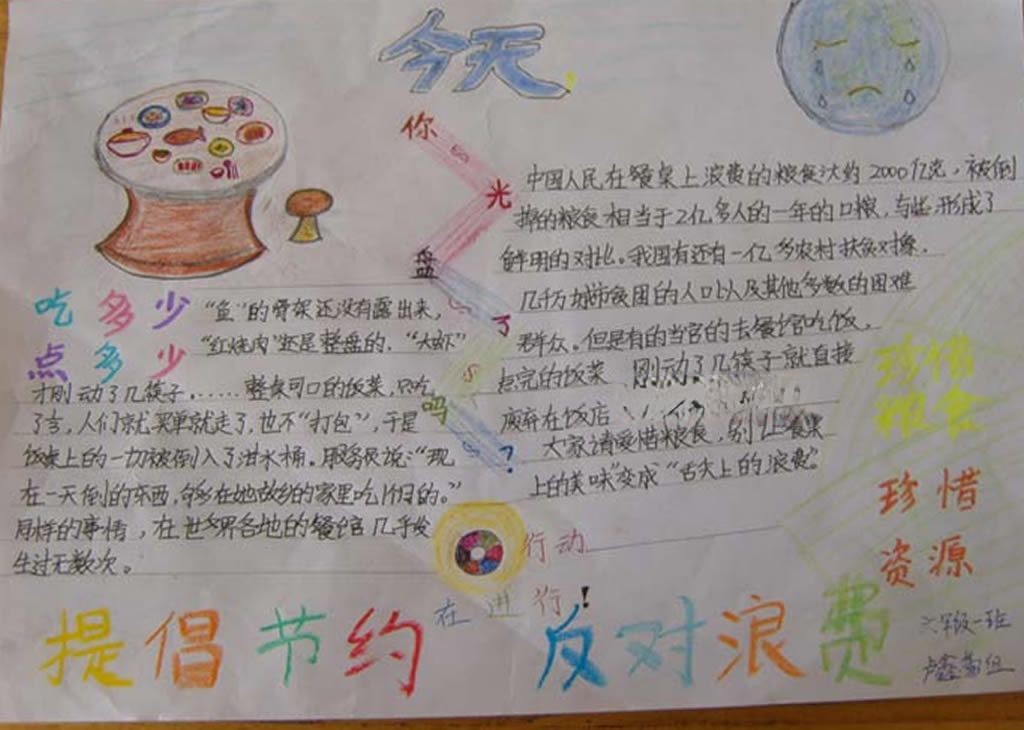 今天，
你
光
盘
了
吗
？
吃多少
点多少
"鱼"的骨架还没有露出来，
"红烧肉"还是整盘的，"大虾"
才刚动了几筷子……整桌可口的饭菜，只吃
了言，人们就买单就走了，也不"打包"，于是
饭桌上的一切被倒入了泔水桶。服务员说："现
在一天倒的东西，够在她故乡的家里吃1个月的。"
同样的事情，在世界各地的餐馆几乎发
生过无数次。
中国人民在餐桌上浪费的粮食达约2000亿克，被倒
掉的粮食相当于2亿多人的一年的口粮，与此形成了
鲜明的对比。我国有还有一亿多农村扶贫对象.
几千万城市贫困的人口以及其他多数的困难
群众。但是有的当官的去餐馆吃饭，
点完的饭菜 刚动了几筷子就直接
废弃在饭店
大家请爱惜粮食，别让餐桌
上的美味"变成"舌尖上的浪费"。
珍惜
粮食
珍惜
资源
行动
在进行！
提倡节约 反对浪费
六年级一班